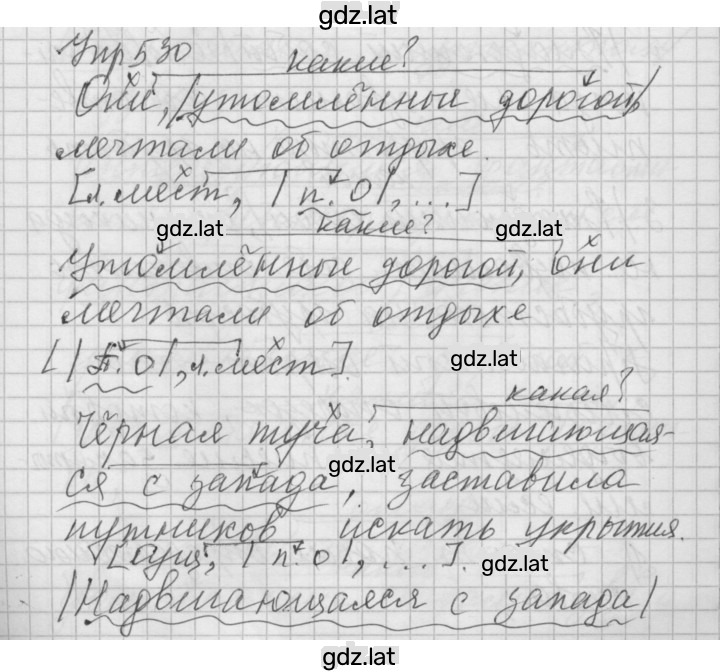 gdz.lat
Упр 530
какие?
Они, |утомлённые дорогой,|
мечтали об отдыхе.
[л.мест, | п. О |, ...]
gdz.lat
gdz.lat
какие?
Утомлённые дорогой, они
мечтали об отдыхе
[| П. О |, л.мест].
gdz.lat
какая?
Чёрная туча, надвигающая-
gdz.lat
ся с запада, заставила
путников искать укрытия.
[сущ, | п. о |, ...].
gdz.lat
|Надвигающаяся с запада|
gdz.lat